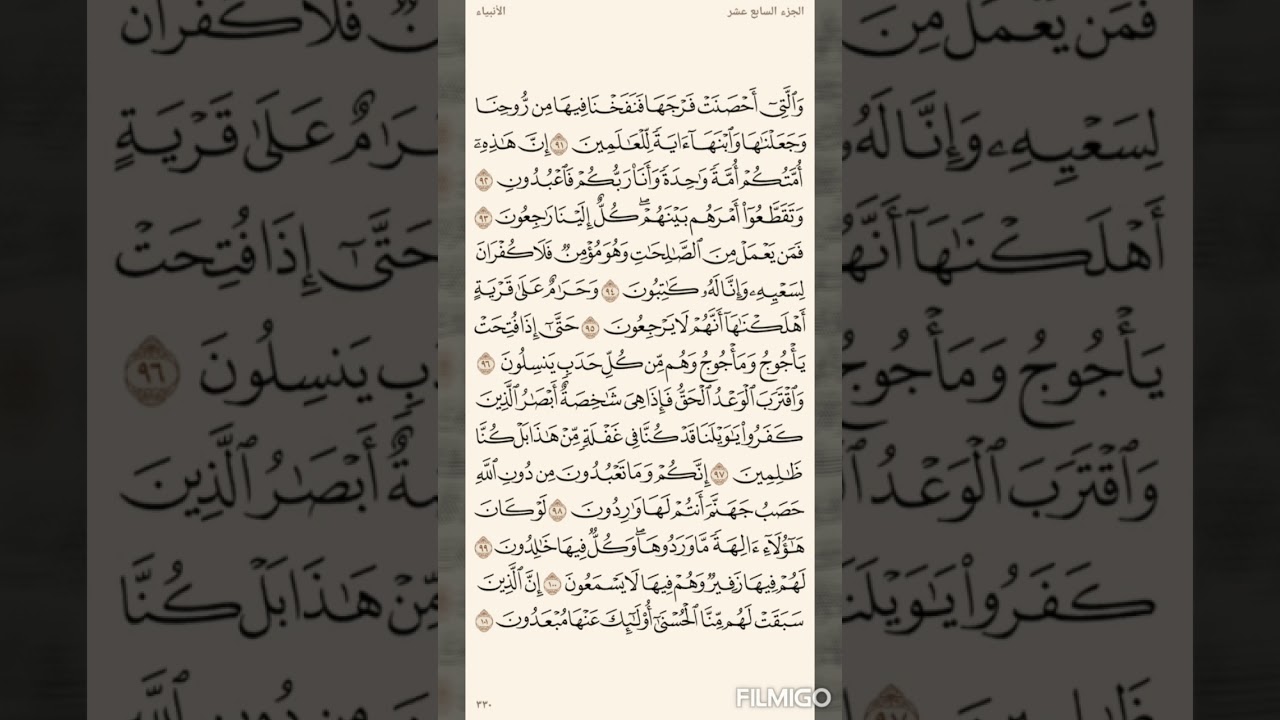 الجزء السابع عشر
الأنبياء
وَٱلَّتِيٓ أَحۡصَنَتۡ فَرۡجَهَا فَنَفَخۡنَا فِيهَا مِن رُّوحِنَا
وَجَعَلۡنَٰهَا وَٱبۡنَهَآ ءَايَةٗ لِّلۡعَٰلَمِينَ ٩١ إِنَّ هَٰذِهِۦٓ
أُمَّتُكُمۡ أُمَّةٗ وَٰحِدَةٗ وَأَنَا۠ رَبُّكُمۡ فَٱعۡبُدُونِ ٩٢
وَتَقَطَّعُوٓاْ أَمۡرَهُم بَيۡنَهُمۡۖ كُلٌّ إِلَيۡنَا رَٰجِعُونَ ٩٣
فَمَن يَعۡمَلۡ مِنَ ٱلصَّٰلِحَٰتِ وَهُوَ مُؤۡمِنٞ فَلَا كُفۡرَانَ
لِسَعۡيِهِۦ وَإِنَّا لَهُۥ كَٰتِبُونَ ٩٤ وَحَرَٰمٌ عَلَىٰ قَرۡيَةٍ
أَهۡلَكۡنَٰهَآ أَنَّهُمۡ لَا يَرۡجِعُونَ ٩٥ حَتَّىٰٓ إِذَا فُتِحَتۡ
يَأۡجُوجُ وَمَأۡجُوجُ وَهُم مِّن كُلِّ حَدَبٖ يَنسِلُونَ ٩٦
وَٱقۡتَرَبَ ٱلۡوَعۡدُ ٱلۡحَقُّ فَإِذَا هِيَ شَٰخِصَةٌ أَبۡصَٰرُ ٱلَّذِينَ
كَفَرُواْ يَٰوَيۡلَنَا قَدۡ كُنَّا فِي غَفۡلَةٖ مِّنۡ هَٰذَا بَلۡ كُنَّا
ظَٰلِمِينَ ٩٧ إِنَّكُمۡ وَمَا تَعۡبُدُونَ مِن دُونِ ٱللَّهِ
حَصَبُ جَهَنَّمَ أَنتُمۡ لَهَا وَٰرِدُونَ ٩٨ لَوۡ كَانَ
هَٰٓؤُلَآءِ ءَالِهَةٗ مَّا وَرَدُوهَاۖ وَكُلّٞ فِيهَا خَٰلِدُونَ ٩٩
لَهُمۡ فِيهَا زَفِيرٞ وَهُمۡ فِيهَا لَا يَسۡمَعُونَ ١٠٠ إِنَّ ٱلَّذِينَ
سَبَقَتۡ لَهُم مِّنَّا ٱلۡحُسۡنَىٰٓ أُوْلَٰٓئِكَ عَنۡهَا مُبۡعَدُونَ ١٠١
٣٣٠
FILMIGO